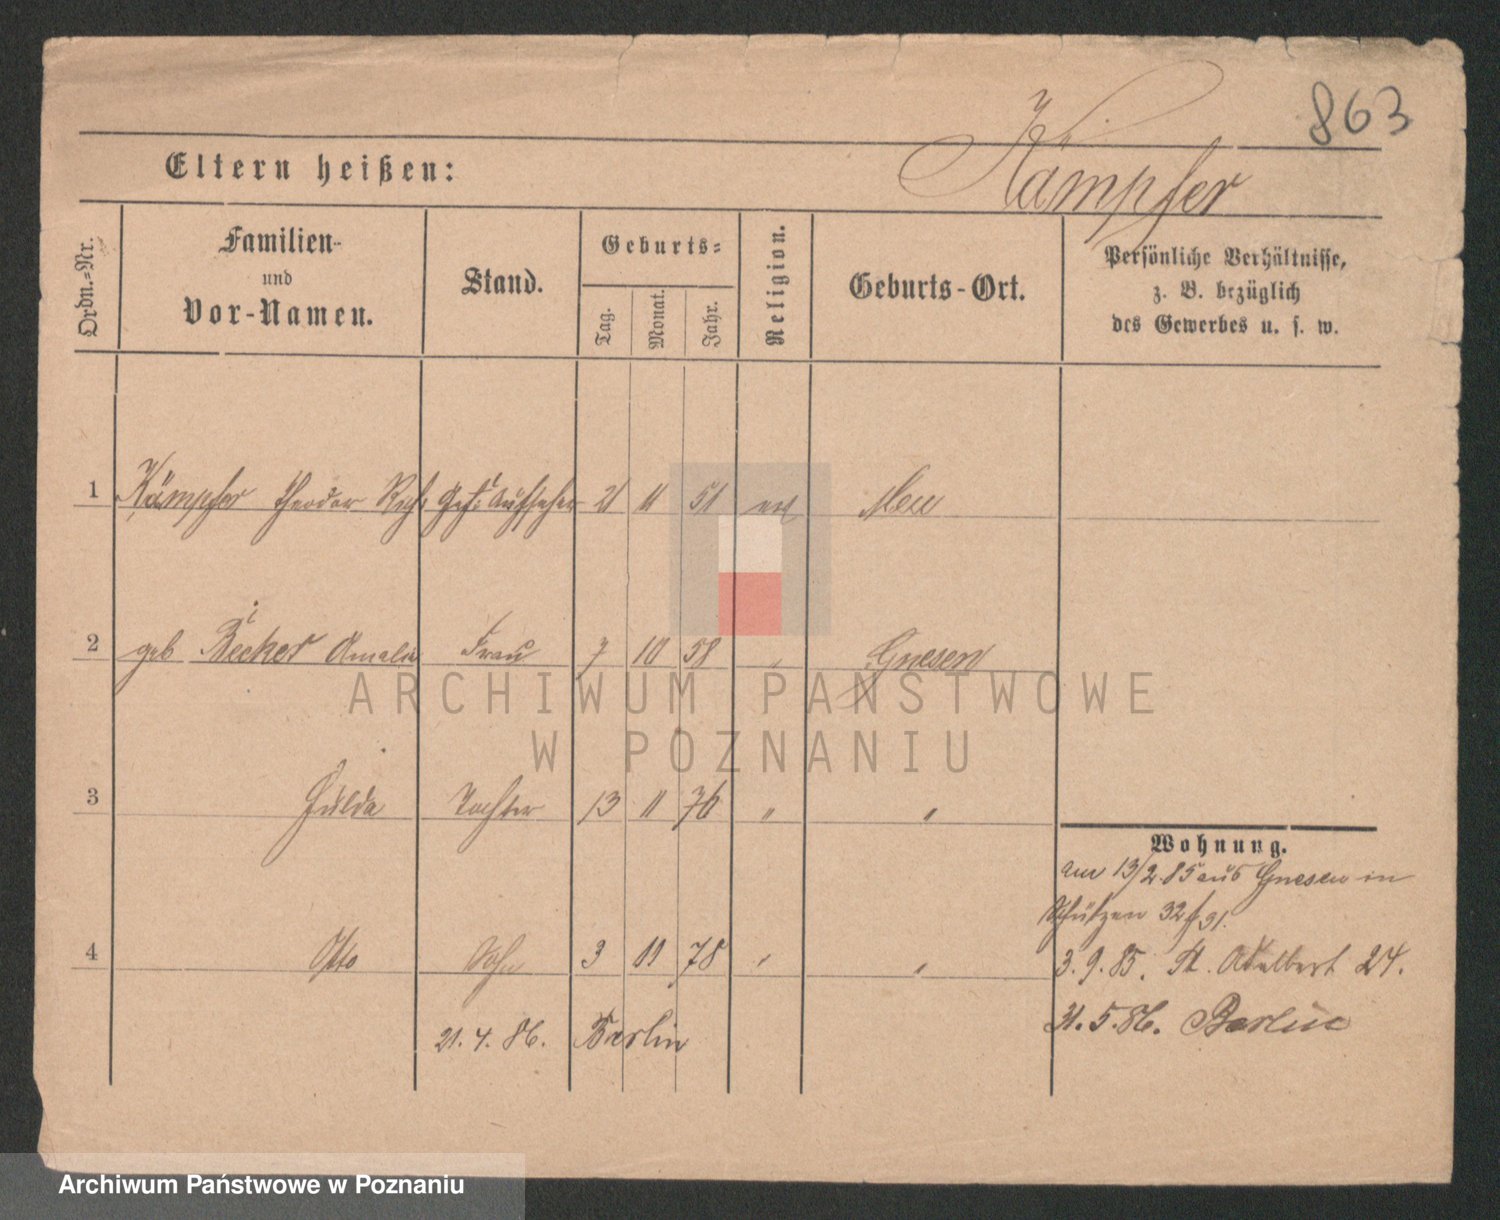 863
Kämpfer
Eltern heißen:
Ordn.-Nr.
Familien-
und
Vor-Namen.
Stand.
Geburts-
Tag.
Monat.
Jahr.
Religion.
Geburts-Ort.
Persönliche Verhältnisse,
z. B. bezüglich
des Gewerbes u. s. w.
1 Kämpfer Theodor Aufseher 21 11 51
2 geb Becker Amalie Frau 7 10 58 " Gnesen
3 Hulda Tochter 13 11 76 " "
4 Otto Sohn 3 10 78 " "
21. 4. 86. Berlin
Wohnung.
am 13/2. 85 aus Gnesen in
Schützen 32
3. 9. 85. St. Adalbert 24.
31. 5. 86. Berlin
ARCHIWUM PAŃSTWOWE
W POZNANIU
Archiwum Państwowe w Poznaniu